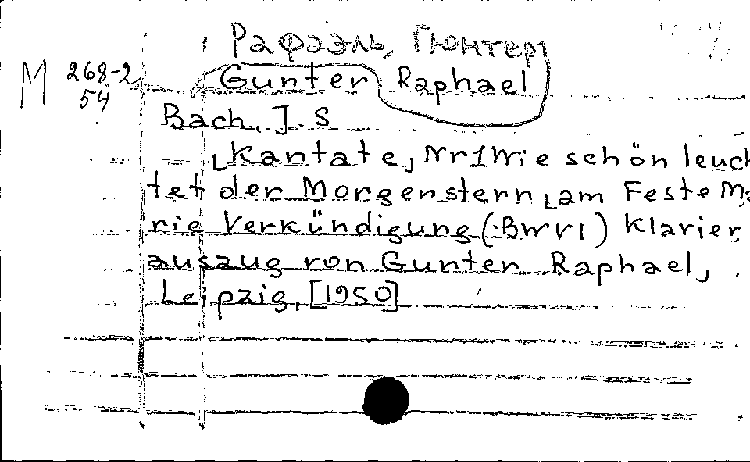 Рафаэль, Гюнтер
M 268-2
54
Gunter Raphael
Bach, J. S
Kantate, Nr1Wie schön leuch
tet der Morgenstern, am Feste Ma
rie Verkündigung (:BWV1) Klavier
auszug von Gunter Raphael,
Leipzig, [1950]